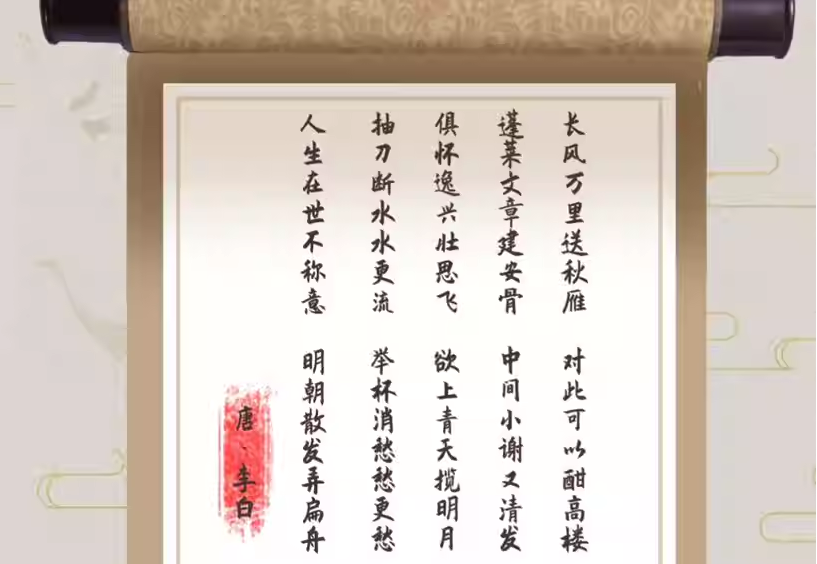 长风万里送秋雁 对此可以酣高楼
蓬莱文章建安骨 中间小谢又清发
俱怀逸兴壮思飞 欲上青天揽明月
抽刀断水水更流 举杯消愁愁更愁
人生在世不称意 明朝散发弄扁舟
唐·李白